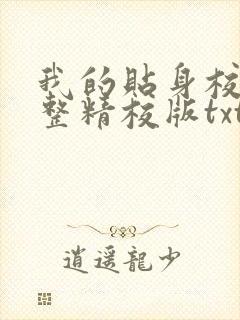 我的貼身校
整精校版txt
逍遥龍少